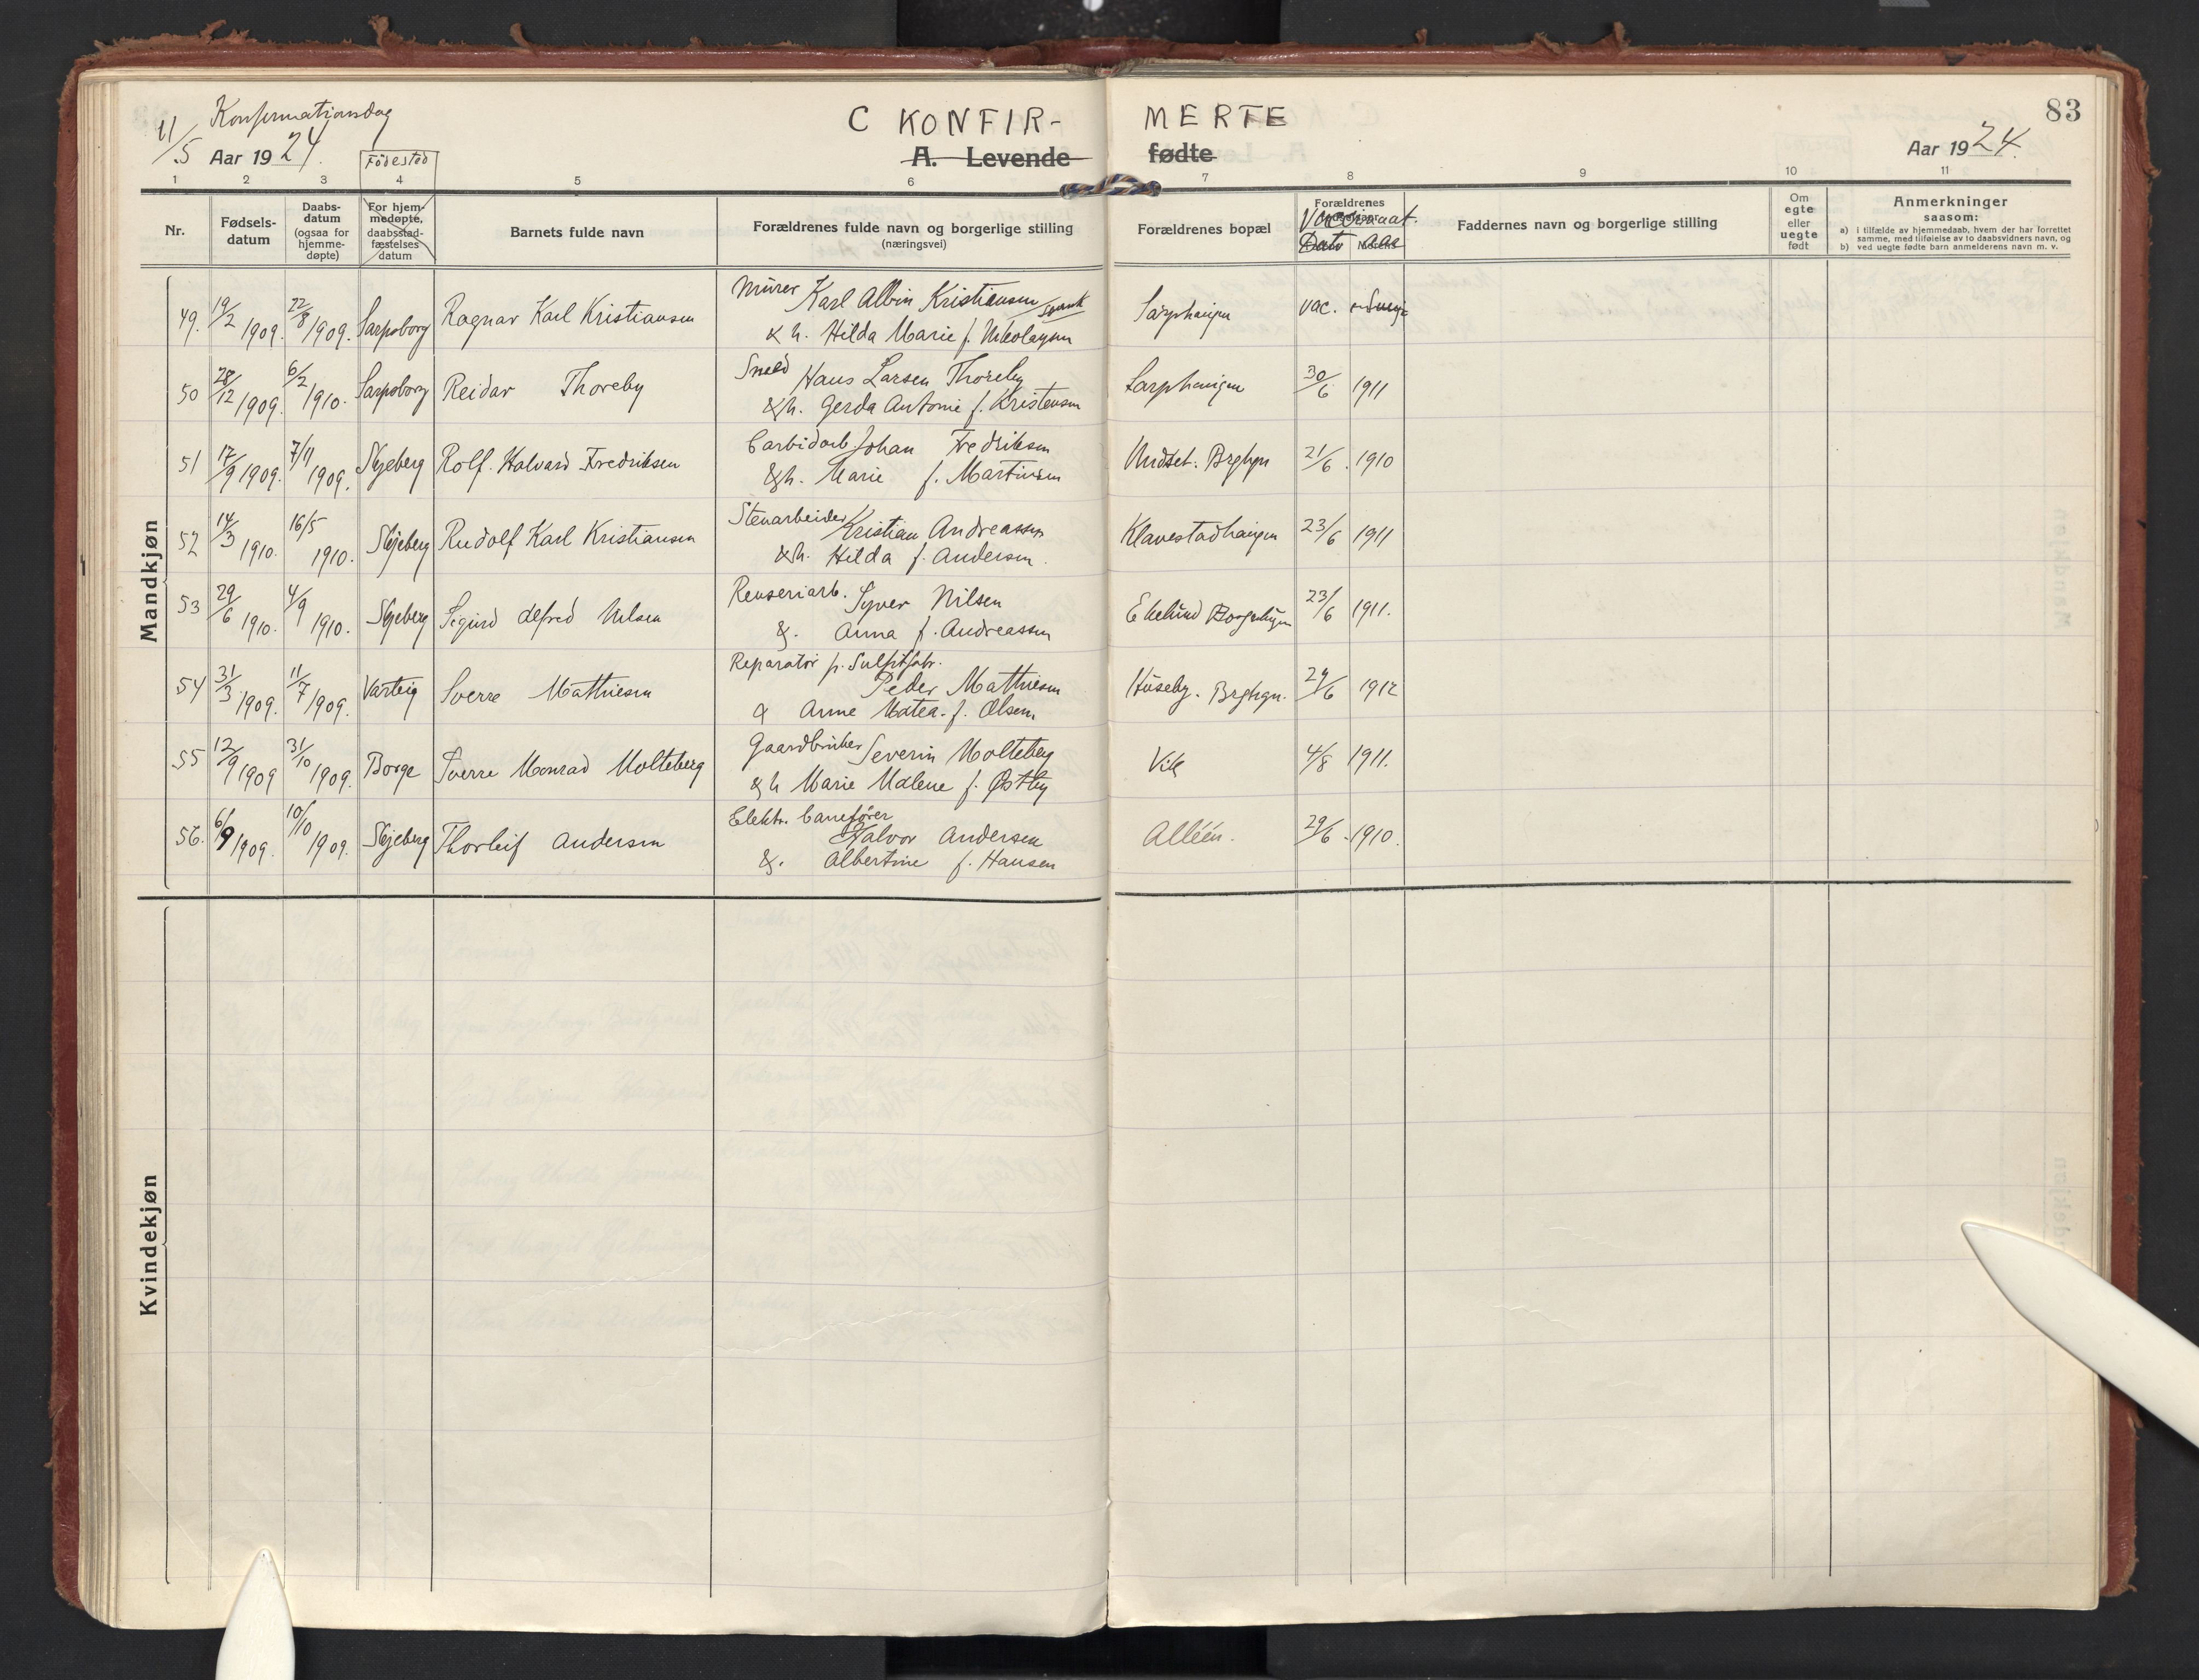 11/5 Konfirmationsdag
C KONFIR- MERTE
83
Aar 1924. Fødested A. Levende fødte Aar 1924.
1 2 3 4 5 6 7 8 9 10 11
Nr.
Fødsels-
datum
Daabs-
datum
(ogsaa for
hjemme-
døpte)
For hjem-
medøpte,
daabsstad-
fæstelses
datum
Barnets fulde navn
Forældrenes fulde navn og borgerlige stilling
(næringsvei)
Forældrenes bopæl
Forældrenes
Vaccinaat.
Dato Aar
Faddernes navn og borgerlige stilling
Om
egte
eller
uegte
født
Anmerkninger
saasom:
a) i tilfælde av hjemmedaab, hvem der har forrettet
samme, med tilføielse av to daabsvidners navn, og
b) ved uegte fødte barn anmelderens navn m. v.
Mandkjøn
49. 19/2 1909. 22/8 1909. Sarpsborg Ragnar Karl Kristiansen Murer Karl Albin Kristiansen svensk Sarphaugen vac.
& h. Hilda Marie f. Nikolaysen
50 28/12 1909. 6/2 1910. Sarpsborg Reidar Thoreby Sned Hans Larsen Thoreby Sarphaugen 30/6 1911
& h. Gerda Antonie f. Kristensen
51 17/9 1909. 7/11 1909. Skjeberg Rolf Halvard Fredriksen Carbidarb. Johan Fredriksen Undset. Brghgn 21/6 1910
& h. Marie f. Martinsen
52 14/3 1910. 16/5 1910. Skjeberg Rudolf Karl Kristiansen Stenarbeider Kristian Andreassen Klavestadhaugen 23/6 1911
& h. Hilda f. Andersen.
53 29/6 1910. 4/9 1910. Skjeberg Sigurd Alfred Nilsen Renseriarb. Syver Nilsen Ekelund Borgenhaugen 23/6 1911.
&. Anna f. Andreassen
54 31/3 1909. 11/7 1909. Varteig Sverre Mathiesen Reparatør p. Sulfitfabr.
Peder Mathiesen Huseby. Brghgn. 24/6 1912
& Anne Matea. f. Olsen
55 12/9 1909 31/10 1909. Borge Sverre Monrad Molteberg Gaardbruker Severin Molteberg Vik 4/8 1911.
& h Marie Malene f. Østby
56. 6/9 1909. 10/10 1909. Skjeberg Thorleif Andersen Elektr. banefører
Halvor Andersen Alléen. 29/6 1910.
&. Albertine f. Hansen
Kvindekjøn